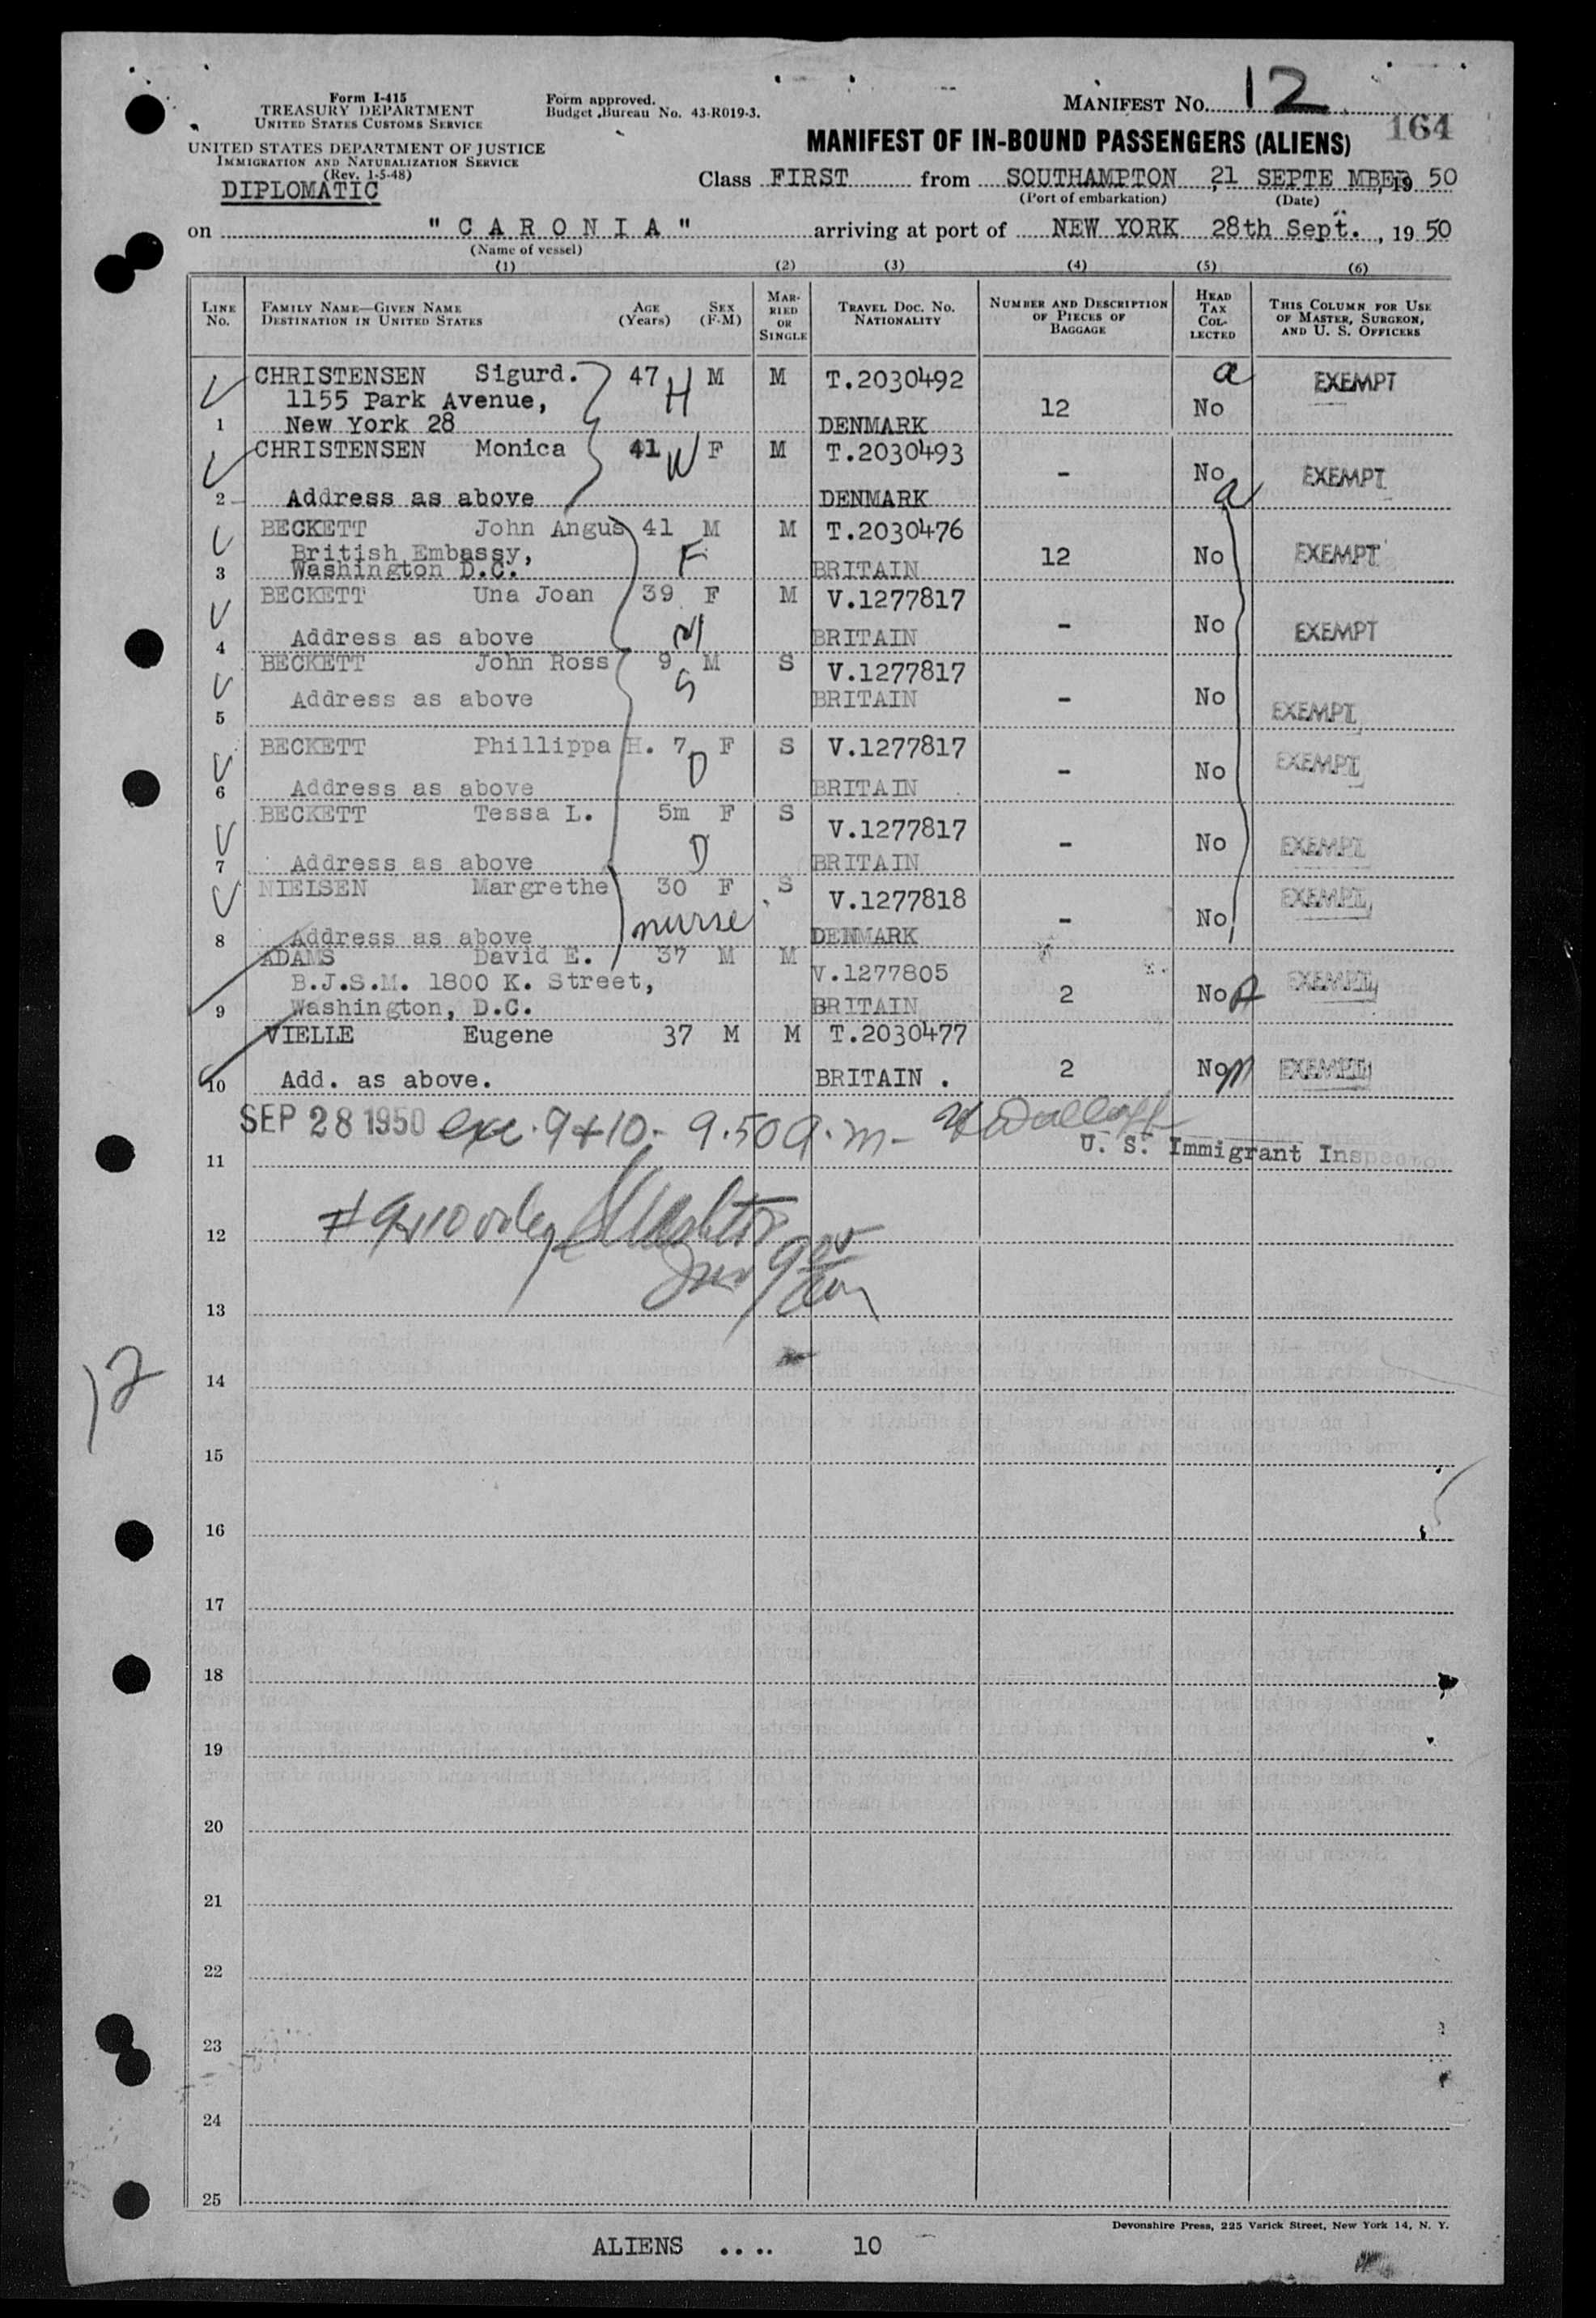 Form I-415
TREASURY DEPARTMENT
UNITED STATES CUSTOMS SERVICE
UNITED STATES DEPARTMENT OF JUSTICE
IMMIGRATION AND NATURALIZATION SERVICE
(Rev. 1-5-48)
DIPLOMATIC
Form approved.
Budget Bureau No. 43-R019-3.
MANIFEST No. 12
164
MANIFEST OF IN-BOUND PASSENGERS (ALIENS)
Class FIRST from SOUTHAMPTON, 21 SEPTE MBER, 19 50
(Port of embarkation) (Date)
on "C A R O N I A" arriving at port of NEW YORK 28th Sept., 19 50
(Name of vessel)
(1) (2) (3) (4) (5) (6)
LINE No. FAMILY NAME—GIVEN NAME DESTINATION IN UNITED STATES AGE (Years) SEX (F-M) MARRIED OR SINGLE TRAVEL DOC. NO. NATIONALITY NUMBER AND DESCRIPTION OF PIECES OF BAGGAGE HEAD TAX COLLECTED THIS COLUMN FOR USE OF MASTER, SURGEON, AND U. S. OFFICERS
CHRISTENSEN Sigurd. 47 H M M T.2030492 a EXEMPT
1155 Park Avenue, 12 No
1 New York 28 DENMARK
CHRISTENSEN Monica 41 W F M T.2030493
- No EXEMPT
2 Address as above DENMARK a
BECKETT John Angus 41 M M T.2030476
British Embassy, F 12 No EXEMPT
3 Washington D.C. BRITAIN
BECKETT Una Joan 39 F M V.1277817
- No EXEMPT
4 Address as above M BRITAIN
BECKETT John Ross 9 M S V.1277817
Address as above S BRITAIN - No
5 EXEMPT
BECKETT Phillippa H. 7 F S V.1277817 EXEMPT
D - No
6 Address as above BRITAIN
BECKETT Tessa L. 5m F S V.1277817
D - No EXEMPT
7 Address as above BRITAIN
NIELSEN Margrethe 30 F S V.1277818 EXEMPT
nurse - No
8 Address as above DENMARK
ADAMS David E. 37 M M V.1277805
B.J.S.M. 1800 K. Street, EXEMPT
9 Washington, D.C. BRITAIN 2 No A
VIELLE Eugene 37 M M T.2030477
10 Add. as above. BRITAIN . 2 No EXEMPT
SEP 28 1950 exc. 9+10- 9.50 a.m-
U. S. Immigrant Inspector
11
12 #9+10
13
14
12
15
16
17
18
19
20
21
22
23
24
25
Devonshire Press, 225 Varick Street, New York 14, N. Y.
ALIENS .... 10